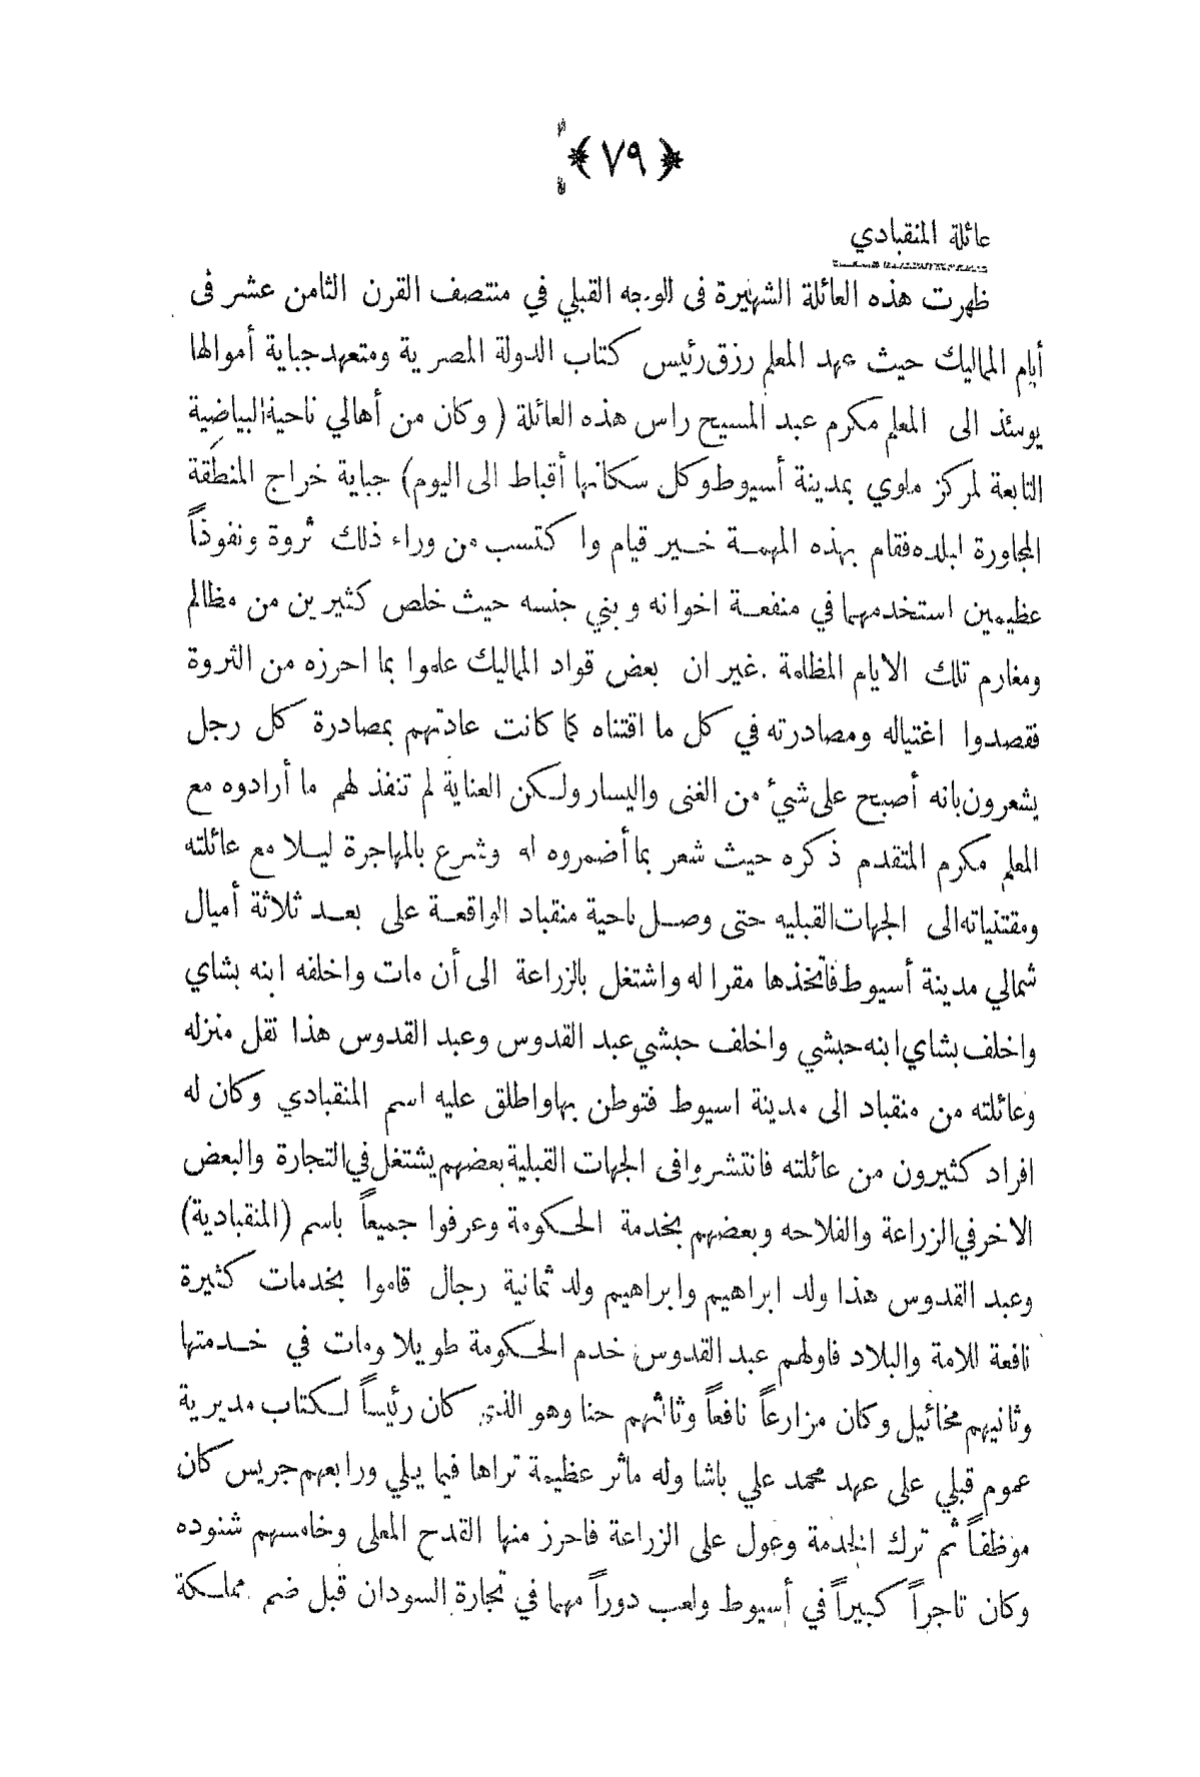 ﴿ ٧٩ ﴾
عائلة المنقبادي
ظهرت هذه العائلة الشهيرة فى الوجه القبلي في منتصف القرن الثامن عشر فى
أيام المماليك حيث عهد المعلم رزق رئيس كتاب الدولة المصرية ومتعهد جباية أموالها
يومئذ الى المعلم مكرم عبد المسيح راس هذه العائلة ( وكان من أهالي ناحية البياضية
التابعة لمركز ملوي بمدينة أسيوط وكل سكانها أقباط الى اليوم) جباية خراج المنطقة
المجاورة لبلده فقام بهذه المهمة خير قيام واكتسب من وراء ذلك ثروة ونفوذاً
عظيمين استخدمهما في منفعة اخوانه وبني جنسه حيث خلص كثيرين من مظالم
ومغارم تلك الايام المظلمة . غير ان بعض قواد المماليك علموا بما احرزه من الثروة
فقصدوا اغتياله ومصادرته في كل ما اقتناه كما كانت عادتهم بمصادرة كل رجل
يشعرون بانه أصبح على شيء من الغنى واليسار ولكن العناية لم تنفذ لهم ما أرادوه مع
المعلم مكرم المتقدم ذكره حيث شعر بما أضمروه له وشرع بالمهاجرة ليلا مع عائلته
ومقتنياته الى الجهات القبليه حتى وصل ناحية منقباد الواقعة على بعد ثلاثة أميال
شمالي مدينة أسيوط فاتخذها مقرا له واشتغل بالزراعة الى أن مات واخلفه ابنه بشاي
واخلف بشاي ابنه حبشي واخلف حبشي عبد القدوس وعبد القدوس هذا نقل منزله
وعائلته من منقباد الى مدينة اسيوط فتوطن بها واطلق عليه اسم المنقبادي وكان له
افراد كثيرون من عائلته فانتشروا فى الجهات القبلية بعضهم يشتغل في التجارة والبعض
الاخر في الزراعة والفلاحه وبعضهم بخدمة الحكومة وعرفوا جميعاً باسم (المنقبادية)
وعبد القدوس هذا ولد ابراهيم وابراهيم ولد ثمانية رجال قاموا بخدمات كثيرة
نافعة للامة والبلاد فاولهم عبد القدوس خدم الحكومة طويلا ومات في خدمتها
وثانيهم مخائيل وكان مزارعاً نافعاً وثالثهم حنا وهو الذي كان رئيساً لكتاب مديرية
عموم قبلي على عهد محمد علي باشا وله مآثر عظيمة تراها فيما يلي ورابعهم جريس كان
موظفاً ثم ترك الخدمة وعول على الزراعة فاحرز منها القدح المعلى وخامسهم شنوده
وكان تاجراً كبيراً في أسيوط ولعب دوراً مهما في تجارة السودان قبل ضم مملكة